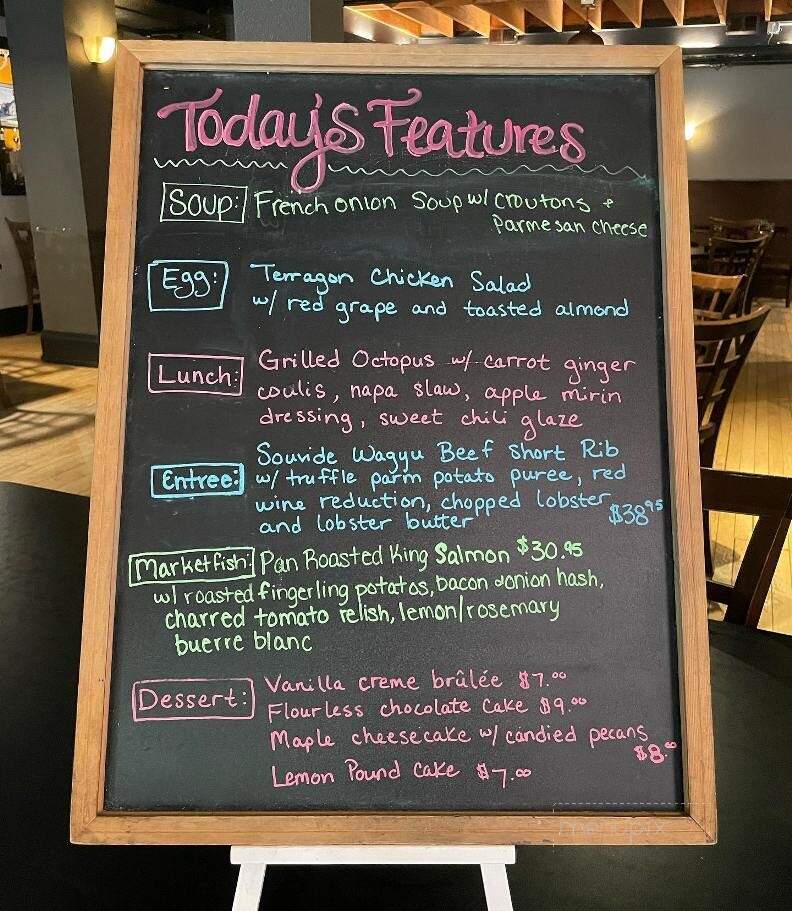 Today's Features
Soup: French onion Soup w/ croutons +
Parmesan cheese
Egg: Terragon Chicken Salad
w/ red grape and toasted almond
Lunch: Grilled Octopus w/ carrot ginger
coulis, napa slaw, apple mirin
dressing, sweet chili glaze
Entree: Souvide Wagyu Beef Short Rib
w/ truffle parm potato puree, red
wine reduction, chopped lobster
and lobster butter $38.95
Market fish: Pan Roasted King Salmon $30.95
w/ roasted fingerling potatos, bacon onion hash,
charred tomato relish, lemon/rosemary
buerre blanc
Dessert: Vanilla creme brûlée $7.00
Flourless chocolate cake $9.00
Maple cheesecake w/ candied pecans
$8.00
Lemon Pound cake $7.00
menupix